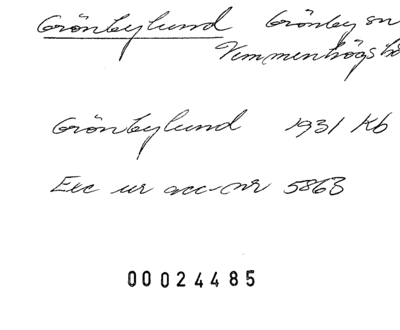 Grönbylund Grönby sn
Vemmenhögs hä
Grönbylund 1931 Kb
Exc ur acc-nr 5863
00024485